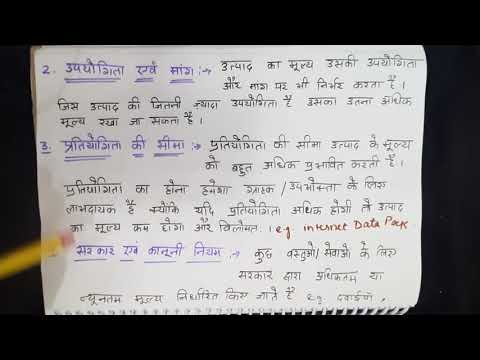 2. उपयोगिता एवं मांग :→ उत्पाद का मूल्य उसकी उपयोगिता
और मांग पर भी निर्भर करता है।
जिस उत्पाद की जितनी ज्यादा उपयोगिता है उसका उतना अधिक
मूल्य रखा जा सकता है।
3. प्रतियोगिता की सीमा :→ प्रतियोगिता की सीमा उत्पाद के मूल्य
को बहुत अधिक प्रभावित करती है।
प्रतियोगिता का होना हमेशा ग्राहक / उपभोक्ता के लिए
लाभदायक है क्योंकि यदि प्रतियोगिता अधिक होगी तो उत्पाद
का मूल्य कम होगा और विलोमतः। e.g. internet Data Pack
सरकार एवं कानूनी नियम :→ कुछ वस्तुओं/सेवाओं के लिए
सरकार द्वारा अधिकतम या
न्यूनतम मूल्य निर्धारित किए जाते है e.g. दवाईयां